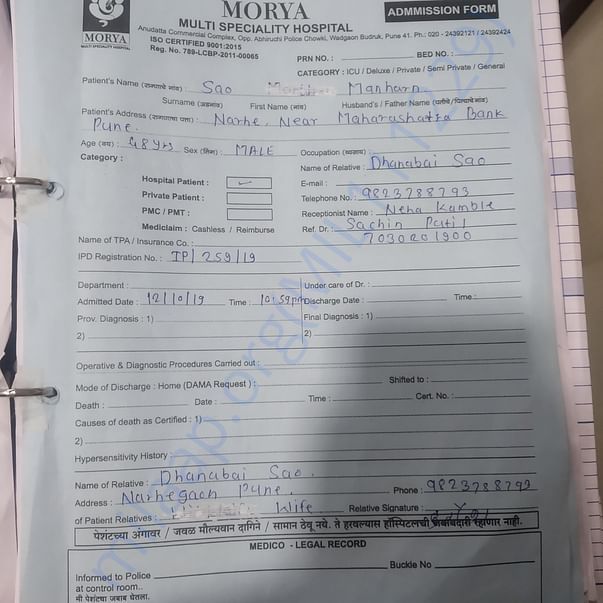 MORYA
MULTI SPECIALITY HOSPITAL
ADMMISSION FORM
MORYA
MULTI SPECIALITY HOSPITAL
Anudatta Commercial Complex, Opp. Abhiruchi Police Chowki, Wadgaon Budruk, Pune 41. Ph.: 020 - 24392121 / 24392424
ISO CERTIFIED 9001:2015
Reg. No. 789-LCBP-2011-00065
PRN NO. : BED NO. :
CATEGORY : ICU / Deluxe / Private / Semi Private / General
Patient's Name (रुग्णाचे नांव) : Sao Manharn
Surname (आडनाव) First Name (नांव) Husband's / Father Name
Patient's Address (रुग्णाचा पत्ता) : Narhe, Near Maharashatra Bank
Pune.
Age (वय) : 48 yrs Sex (लिंग) : MALE Occupation (व्यवसाय) :
Category : Name of Relative : Dhanabai Sao
Hospital Patient : ✓ E-mail :
Private Patient : Telephone No. : 9823788793
PMC / PMT : Receptionist Name : Neha Kamble
Mediclaim : Cashless / Reimburse Ref. Dr. : Sachin Patil
Name of TPA / Insurance Co. : 7030201900
IPD Registration No. : IP/259/19
Department : Under care of Dr. :
Admitted Date : 12/10/19 Time : 10:59pm Discharge Date : Time :
Prov. Diagnosis : 1) Final Diagnosis : 1)
2) 2)
Operative & Diagnostic Procedures Carried out :
Mode of Discharge : Home (DAMA Request ) : Shifted to :
Death : Date : Time : Cert. No. :
Causes of death as Certified : 1)
2)
Hypersensitivity History :
Name of Relative : Dhanabai Sao.
Address : Narhegaon Pune. Phone : 9823788793
of Patient Relatives : Wife Relative Signature :
पेशंटच्या अंगावर / जवळ मौल्यवान दागिने / सामान ठेवू नये. ते हरवल्यास हॉस्पिटलची जबाबदारी राहणार नाही.
MEDICO - LEGAL RECORD
Informed to Police Buckle No
at control room..
मी पेशंटचा जबाब घेतला.